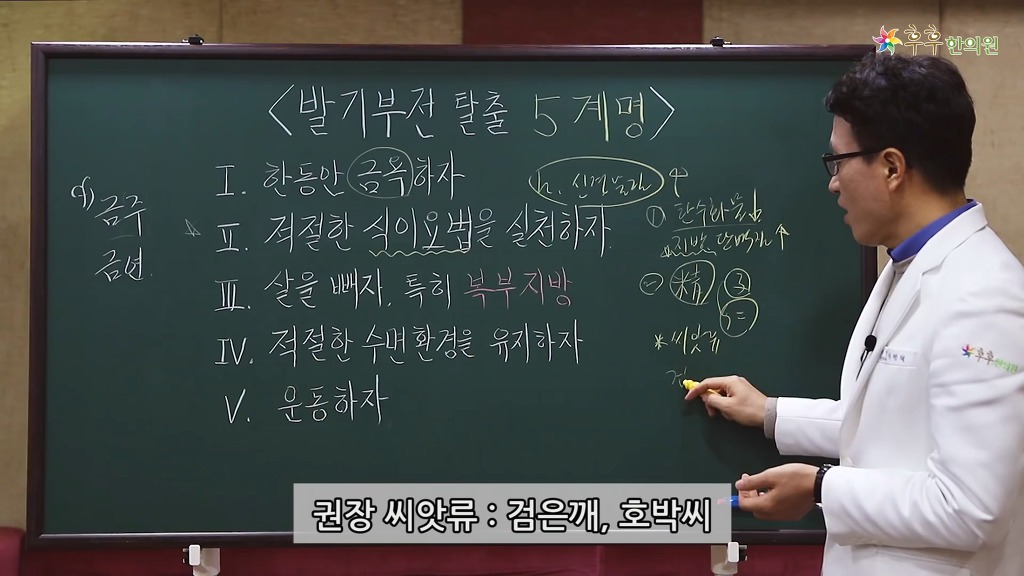 후후한의원
<발기부전 탈출 5계명>
Ⅰ. 한동안 금욕하자
Ⅱ. 적절한 식이요법을 실천하자
Ⅲ. 살을 빼자. 특히 복부지방
Ⅳ. 적절한 수면환경을 유지하자
Ⅴ. 운동하자
금주
금연
h.
① 탄수화물↓
지방 단백질↑
② 精
*씨앗류
후후한의원
권장 씨앗류 : 검은깨, 호박씨